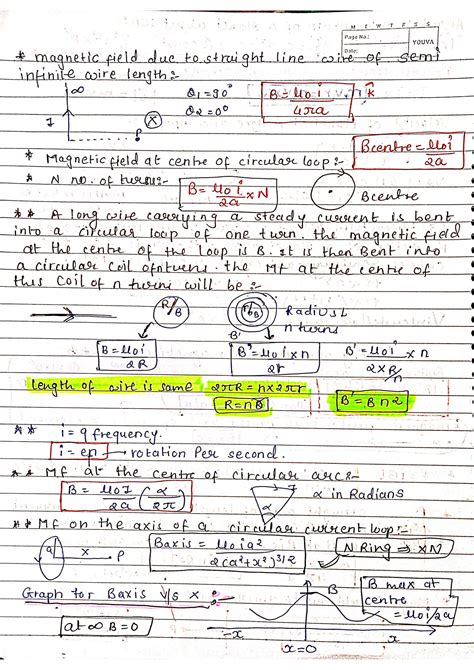 MEWTESS
Page No.:
Date:
YOUVA
* magnetic field due to straight line wire of semi
infinite wire length:-
∞
I
P
θ1=90°
θ2=0°
B = μ0 i / 4πa k̂
* Magnetic field at centre of circular loop:-
Bcentre = μ0 i / 2a
* N no. of turns:-
B = μ0 i / 2a × N
Bcentre
** A long wire carrying a steady current is bent
into a circular loop of one turn. the magnetic field
at the centre of the loop is B. It is then Bent into
a circular coil of n turns. the Mf at the centre of
this coil of n turns will be :-
R/B
B'
Radius
n turns
B = μ0 i / 2R
B' = μ0 i × n / 2r
B' = μ0 i / 2×R/n n
length of wire is same 2πR = n×2πr
B' = B n2
** i = q frequency.
i = en → rotation Per second.
** Mf at the centre of circular arc:-
B = μ0 I / 2a (α / 2π)
α
α in Radians
** Mf on the axis of a circular current loop:-
a
x
P
Baxis = μ0 i a² / 2(a²+x²)3/2
N Ring ⇒ xN
Graph for Baxis v/s x :-
B
B max at
centre
= μ0 i/2a
at ∞ B=0
-x
x=0
x